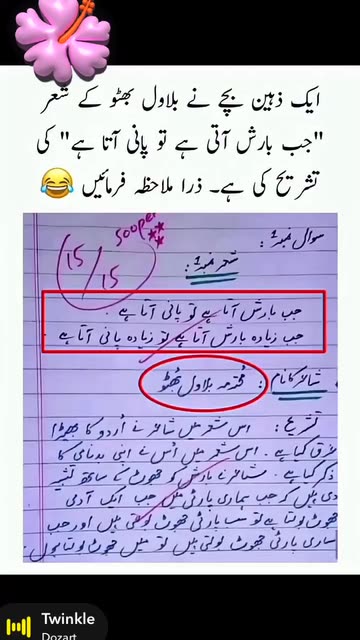 ایک ذہین بچے نے بلاول بھٹو کے شعر
"جب بارش آتی ہے تو پانی آتا ہے" کی
تشریح کی ہے۔ ذرا ملاحظہ فرمائیں 😂
سوال نمبر 1:
15/15
sooper
شعر نمبر 1:
جب بارش آتا ہے تو پانی آتا ہے۔
جب زیادہ بارش آتا ہے تو زیادہ پانی آتا ہے
شاعر کا نام: محترمہ بلاول بھٹو
تشریح: اس شعر میں شاعر نے اُردو کا بیڑا
غرق کیا ہے۔ اس شعر میں اُس نے اپنی بدنامی کا
ذکر کیا ہے۔ شاعر نے بارش کو جھوٹ کے ساتھ تشبیہ
دی ہیں کہ جب ہماری پارٹی میں جب ایک آدمی
جھوٹ بولتا ہے تو سب پارٹی جھوٹ بولتی ہیں اور جب
ساری پارٹی جھوٹ بولتی ہیں تو میں جھوٹ بولتا ہوں۔
Twinkle
Dozart